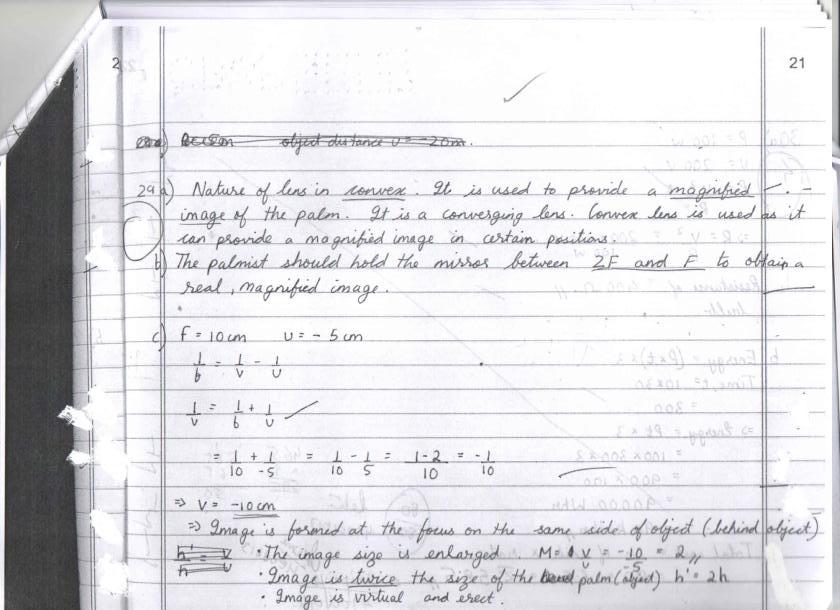 2
21
29 a) Nature of lens in convex. It is used to provide a magnified
image of the palm. It is a converging lens. Convex lens is used as it
can provide a magnified image in certain positions.
b) The palmist should hold the mirror between 2F and F to obtain a
real, magnified image.
c) f = 10cm u = - 5 cm
1/f = 1/v - 1/u
1/v = 1/f + 1/u
= 1/10 + 1/-5 = 1/10 - 1/5 = 1-2/10 = -1/10
⇒ v = -10cm
⇒ Image is formed at the focus on the same side of object (behind object)
• The image size is enlarged. M = v/u = -10/-5 = 2
• Image is twice the size of the palm (object) h' = 2h
• Image is virtual and erect.